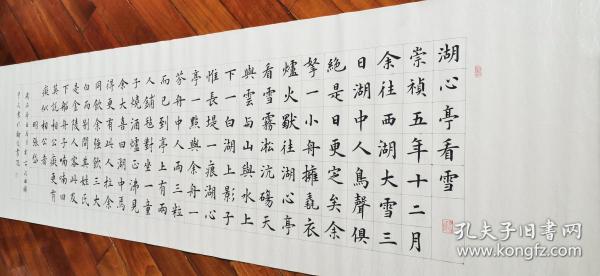 湖心亭看雪
崇禎五年十二月
余往西湖大雪三
日湖中人鳥聲俱
絶是日更定矣余
拏一小舟擁毳衣
爐火獨往湖心亭
看雪霧凇沆碭天
與雲與山與水上
下一白湖上影子
惟長堤一痕湖心
亭一點與余舟一
芥舟中人兩三粒
而已到亭上有兩
人鋪氈對坐一童
子燒酒爐正沸見
余大喜曰湖中焉
得更有此人拉余
同飲余強飲三大
白而别問其姓氏
是金陵人客此及
下船舟子喃喃曰
莫説相公癡更有
癡似相公者
明張岱
孔夫子旧书网
www.kongfz.com